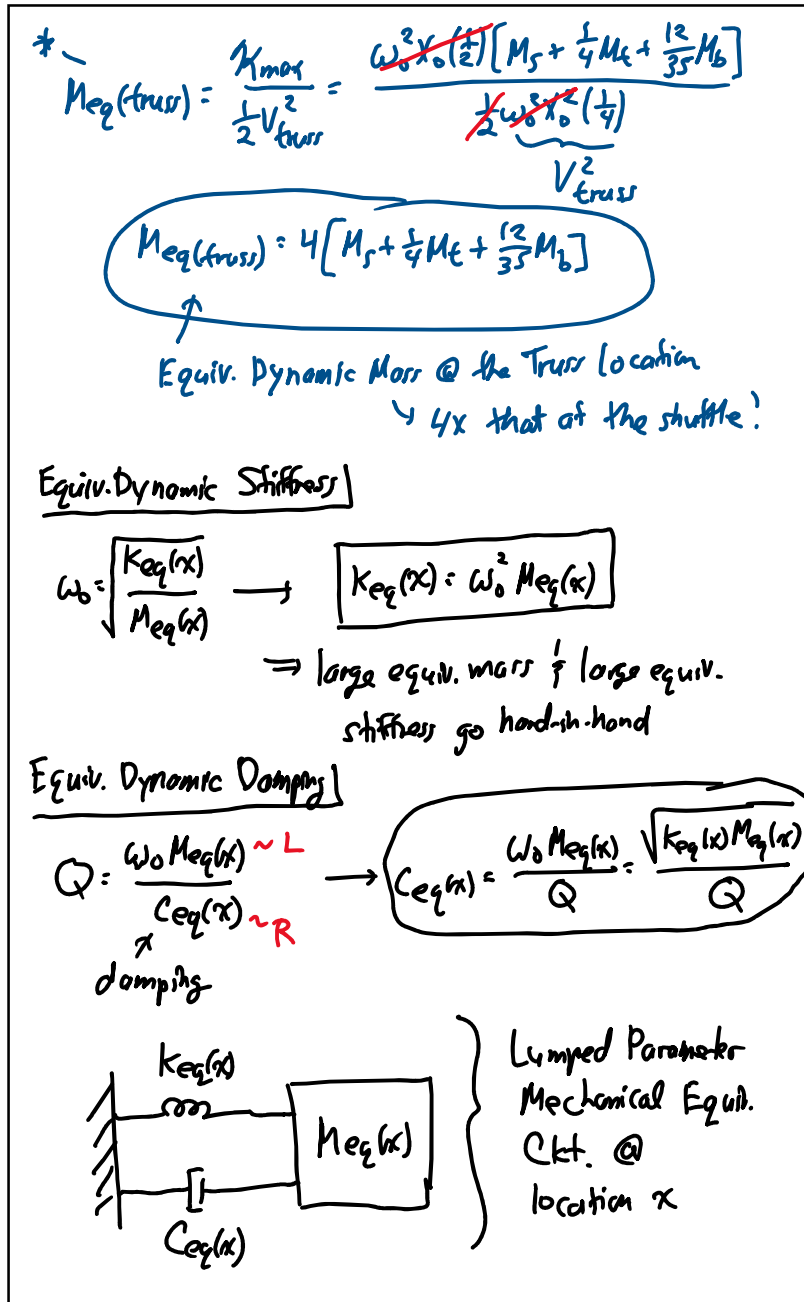 * M_eq(truss) = K_max / (1/2 V_truss^2) = ω_0^2 X_0 (1/2) [M_s + 1/4 M_t + 12/35 M_b] / (1/2 ω_0^2 X_0^2 (1/4))
V_truss^2
M_eq(truss) = 4[M_s + 1/4 M_t + 12/35 M_b]
Equiv. Dynamic Mass @ the Truss location
↳ 4x that at the shuttle!
Equiv. Dynamic Stiffness
ω_0 = √(K_eq(x) / M_eq(x)) → K_eq(x) = ω_0^2 M_eq(x)
⇒ large equiv. mass & large equiv.
stiffness go hand-in-hand
Equiv. Dynamic Damping
Q = ω_0 M_eq(x) ~ L / C_eq(x) ~ R → C_eq(x) = ω_0 M_eq(x) / Q = √(K_eq(x) M_eq(x)) / Q
damping
K_eq(x)
M_eq(x)
C_eq(x)
Lumped Parameter
Mechanical Equiv.
Ckt. @
location x